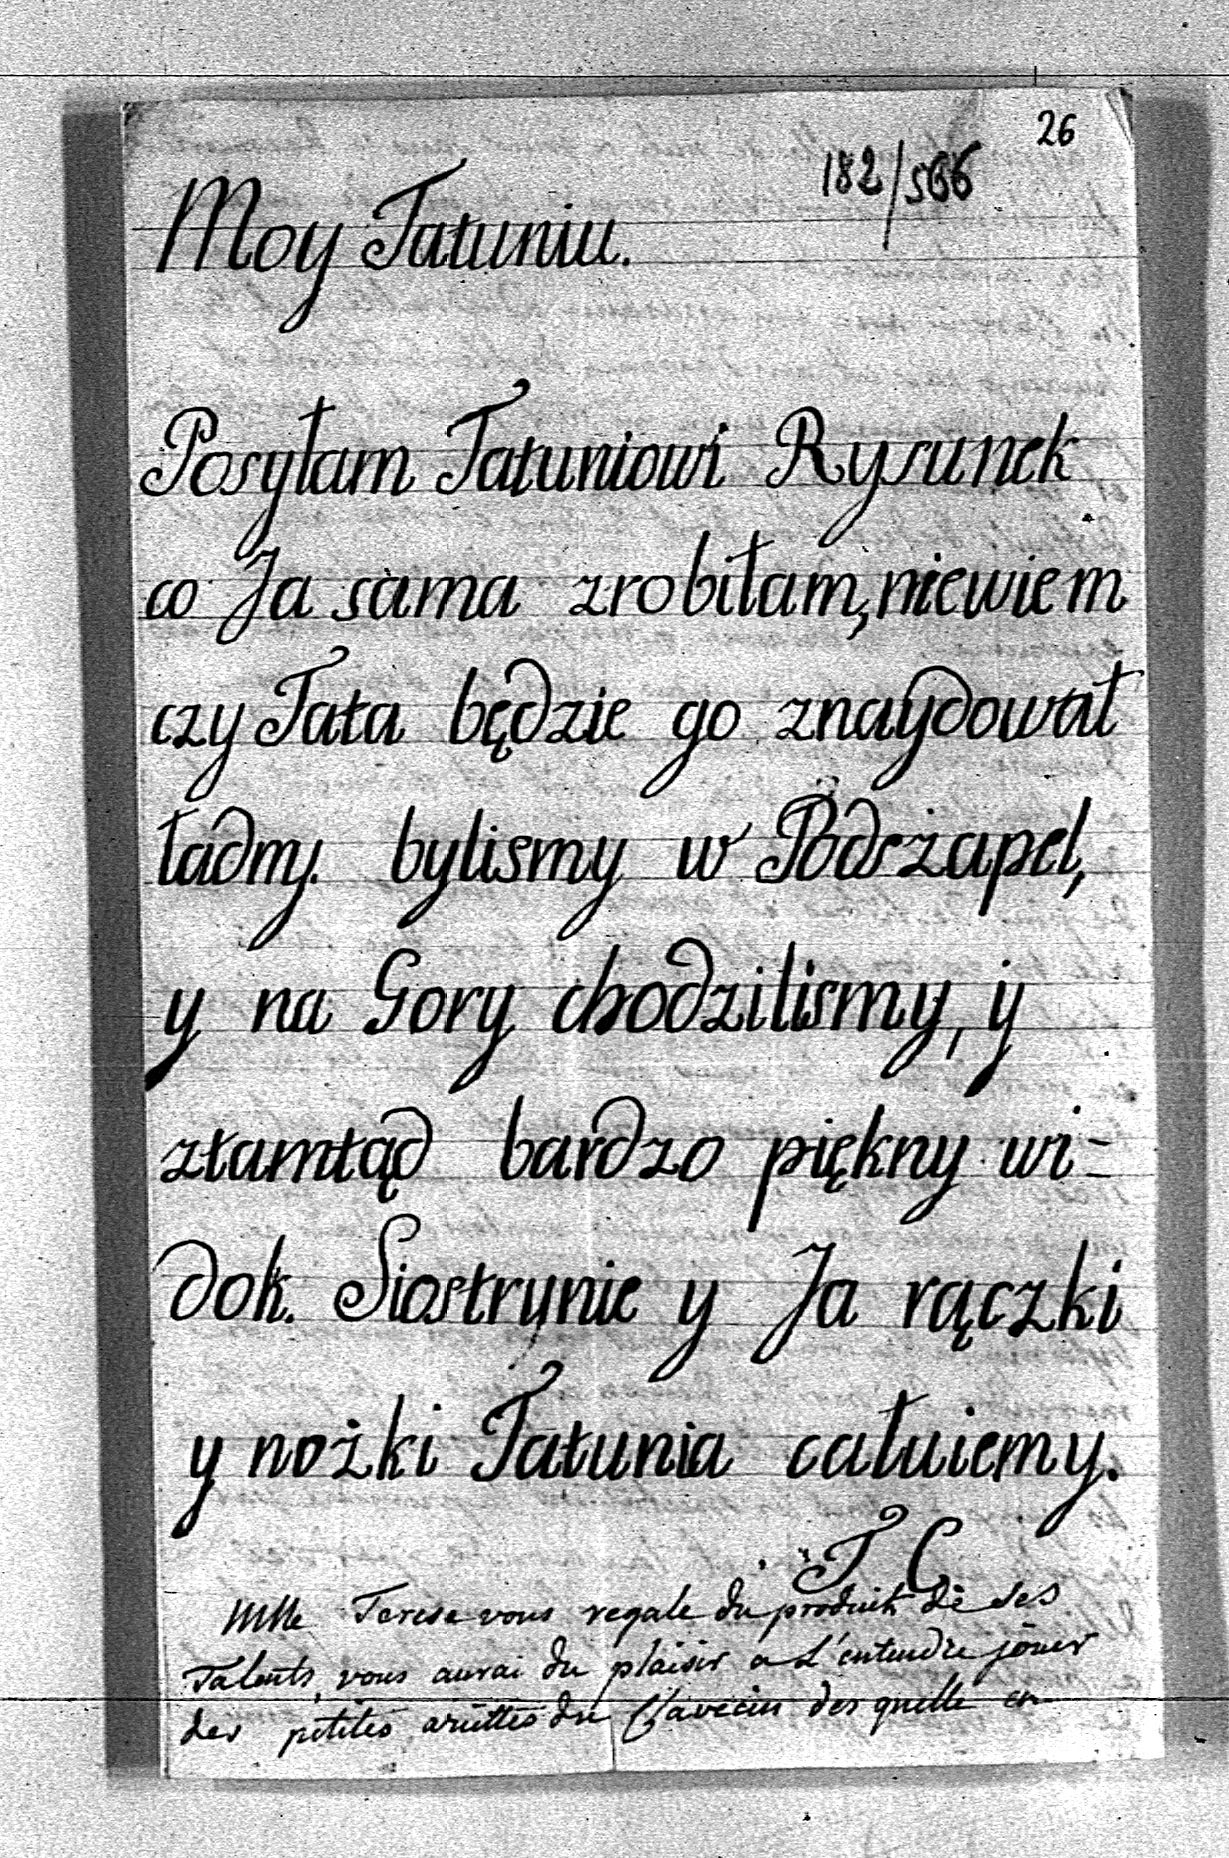 26
182/566
Moy Tatuniu.
Posyłam Tatuniowi Rysunek
co Ja sama zrobiłam, niewiem
czy Tata będzie go znaydował
ładny. bylismy w Podsżapel,
y na Gory chodzilismy, y
ztamtąd bardzo piękny wi-
dok. Siostrynie y Ja rączki
y nożki Tatunia całuiemy.
T C
Mlle Terese vous regale du produit de ses
Talents, vous aurai du plaisir a L'entendre jouer
des petites ariettes du Clavecin des quelle en